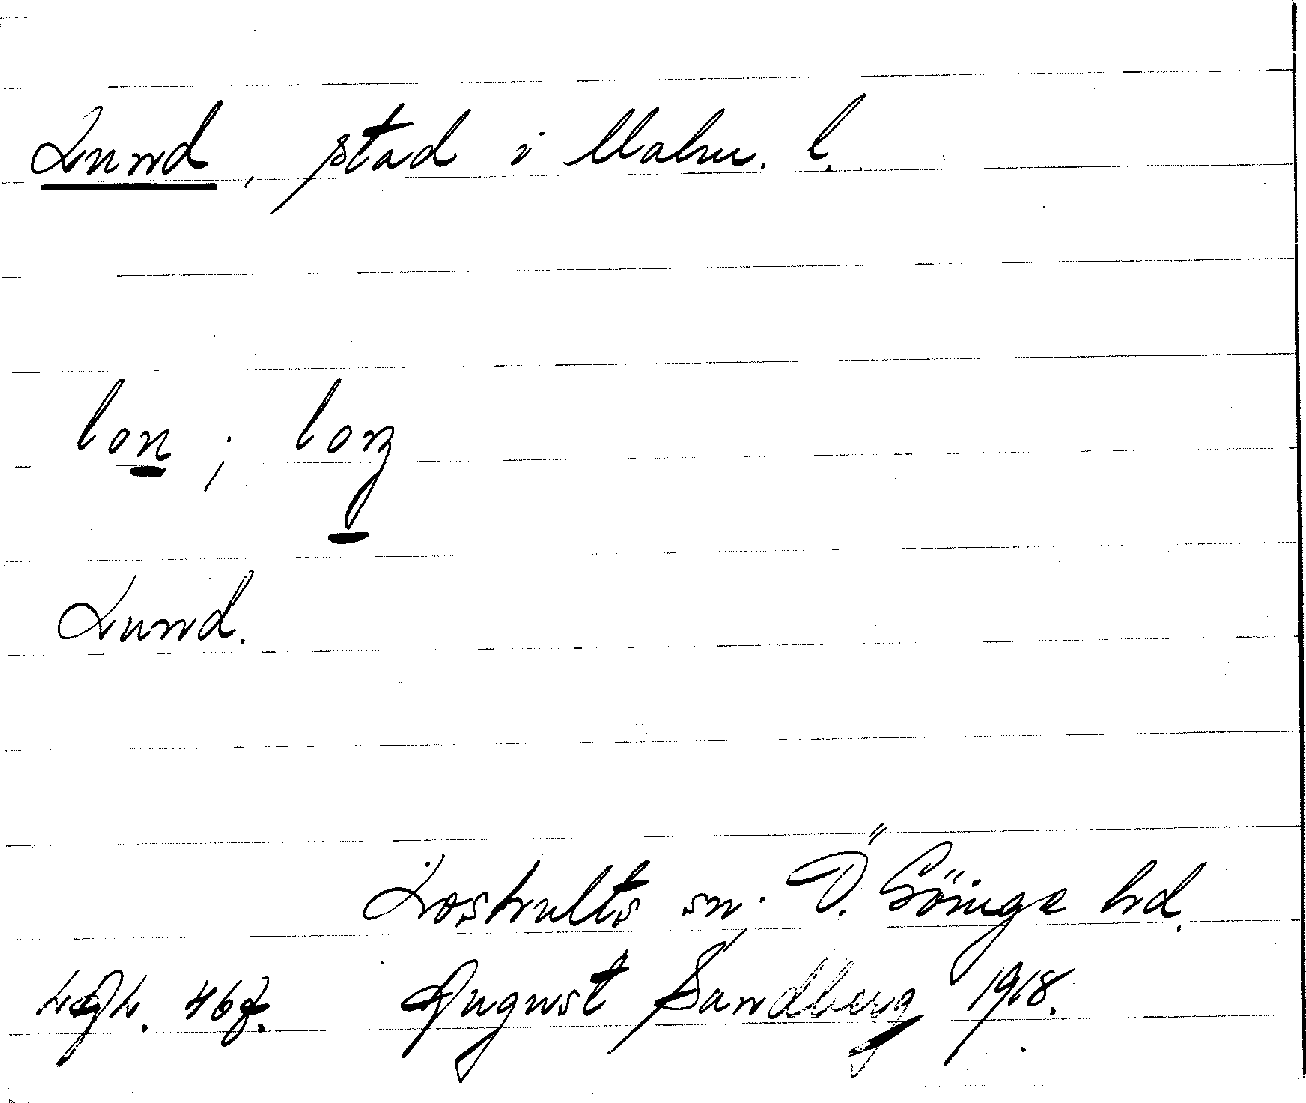 Lund, stad i Malm. l.
lon ; lonz
Lund.
Loshults sn. Ö. Göinge hd.
August Sandberg 1918.